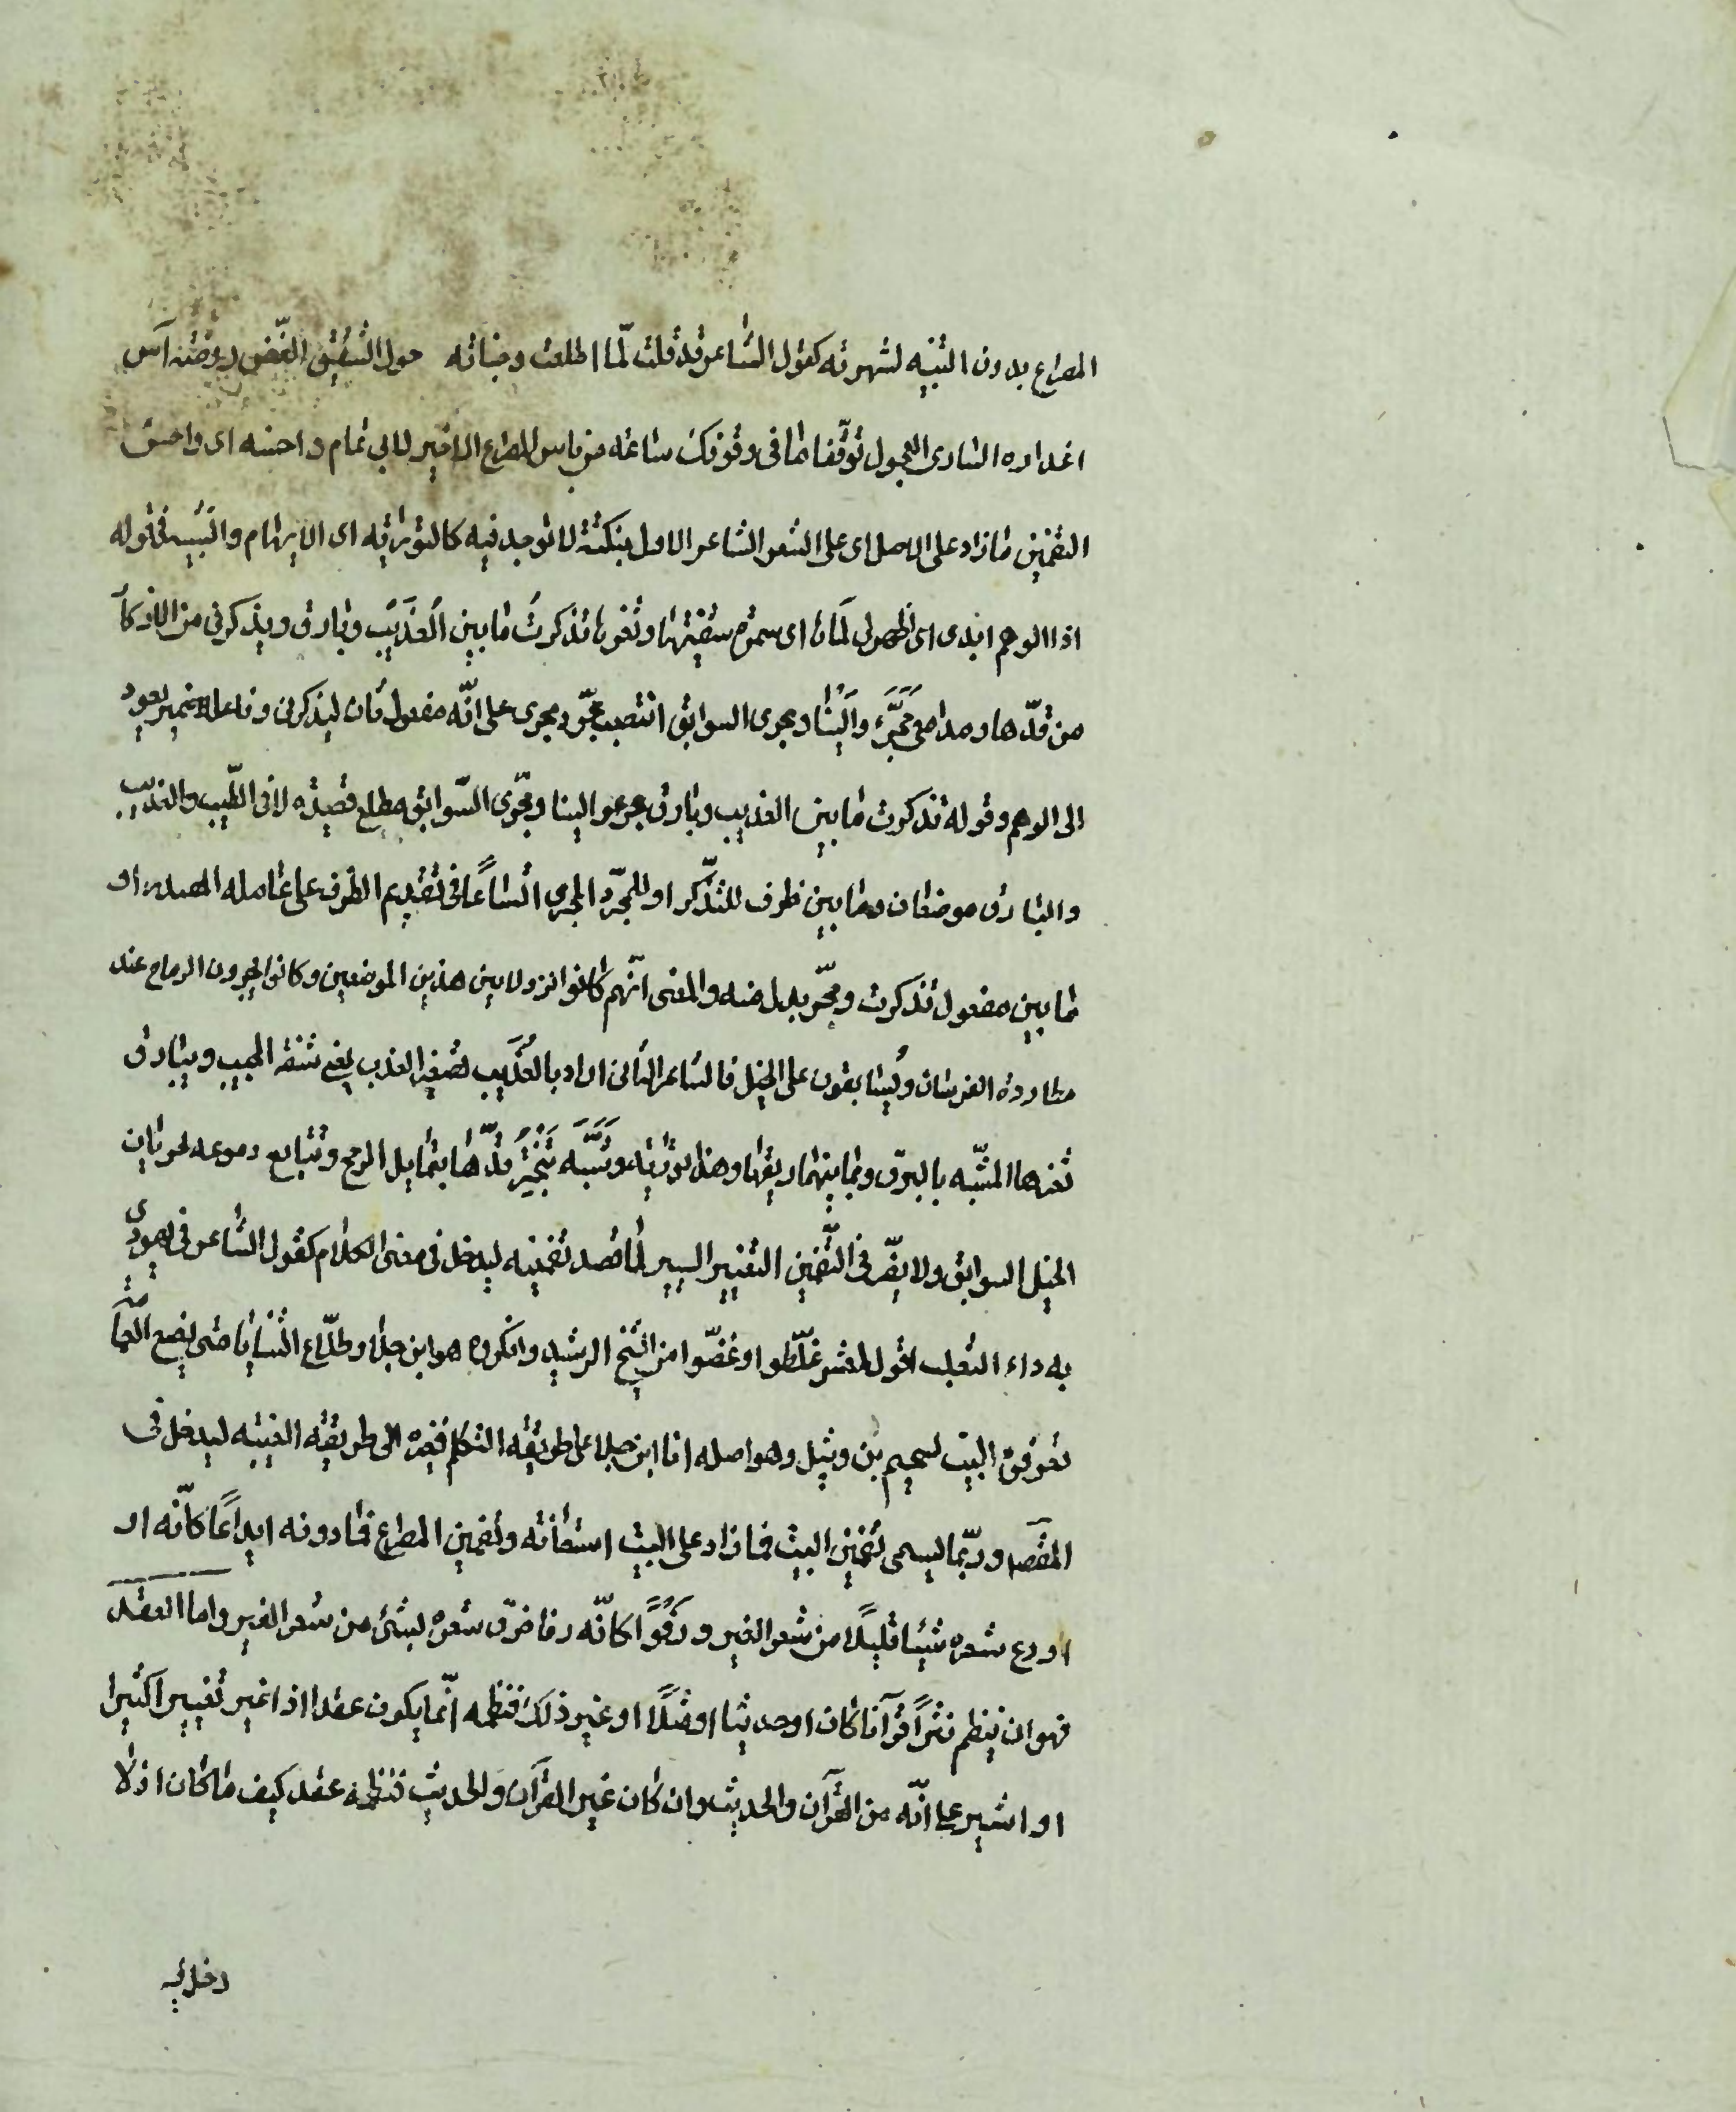 المصراع بدون التنبيه لشهرته كقول الشاعر قد قلت لمّا اطلعت وجناته حول الشقيق الغضّ روضة آس
اعذاره الساري العجول توقّفا ما في وقوفك ساعة من باس المصراع الاخير لابي تمام واحسنه اي واحسن
التضمين ما زاد على الاصل اى على الشعر الشاعر الاول بنكتة لا توجد فيه كالتورية اى الايهام والتشبيه في قوله
اذا الوهم ابدى اى اظهر لى لَمَاها اى سمرة شفتيها وثغرها تذكرتُ ما بين العُذَيْبِ وبارق ويذكرنى من الاذكار
من قدّها ومدامعى مَجَرَّ عَوَالِيْنَا ومجرى السوابق انتصب مجرّ ومجرى على انّه مفعول ثان ليذكرنى وفاعله ضمير يعود
الى الوهم وقوله تذكرت ما بين العذيب وبارق مجر عوالينا ومجرى السّوابق مطلع قصيدة لابى الطّيب والعذيب
والبارق موضعان وما بين ظرف للتذكّر او للمجرّ والمجرى اتّساعًا فى تقديم الظرف على عامله المصدر او
ما بين مفعول تذكرت ومجرّ بدل منه والمعنى انّهم كانوا نزولا بين هذين الموضعين وكانوا يجرون الرماح عند
مطاردة الفرسان ويُسابقون على الخيل فالشاعر الثانى اراد بالعُذَيب تصغير العذب يعنى شفة الحبيب وببارق
ثغرها المشبّه بالبرق وبما بينهما ريقها وهذا تورية وشَبَّهَ تَبَخْتُرَ قدّها بتمايل الرمح وتتابع دموعه بجريان
الخيل السوابق ولا يضرّ فى التّضمين التغيير اليسير لما قصد تضمينه ليدخل فى معنى الكلام كقول الشاعر فى يهودىّ
به داء الثعلب اقول لمعشر غلّطوا وغضّوا من الشّيخ الرشيد وانكروه هو ابن جلا وطلّاع الثنايا متى يضع العمامة
تعرفوه البيت لسحيم بن وثيل وهو اصله انا ابن جلا على طريقة التكلم فغيره الى طريقة الغيبة ليدخل فى
المقصد وربّما يسمى تضمين البيت فما زاد على البيت استعانة وتضمين المصراع فما دونه ايداعًا كانّه او
اودع شعره شيئا قليلًا من شعر الغير ورَفْوًا كانّه رفا خرق شعره بشئ من شعر الغير واما العقد
فهو ان ينظم نثرًا قرآنا كان او حديثا او مثلًا او غير ذلك فنظمه انّما يكون عقدا اذا غير تغييرا كثيرا
او اشير على انّه من القرآن والحديث وان كان غير القرآن والحديث فنظمه عقد كيف ما كان اذ لا
دخل فيه